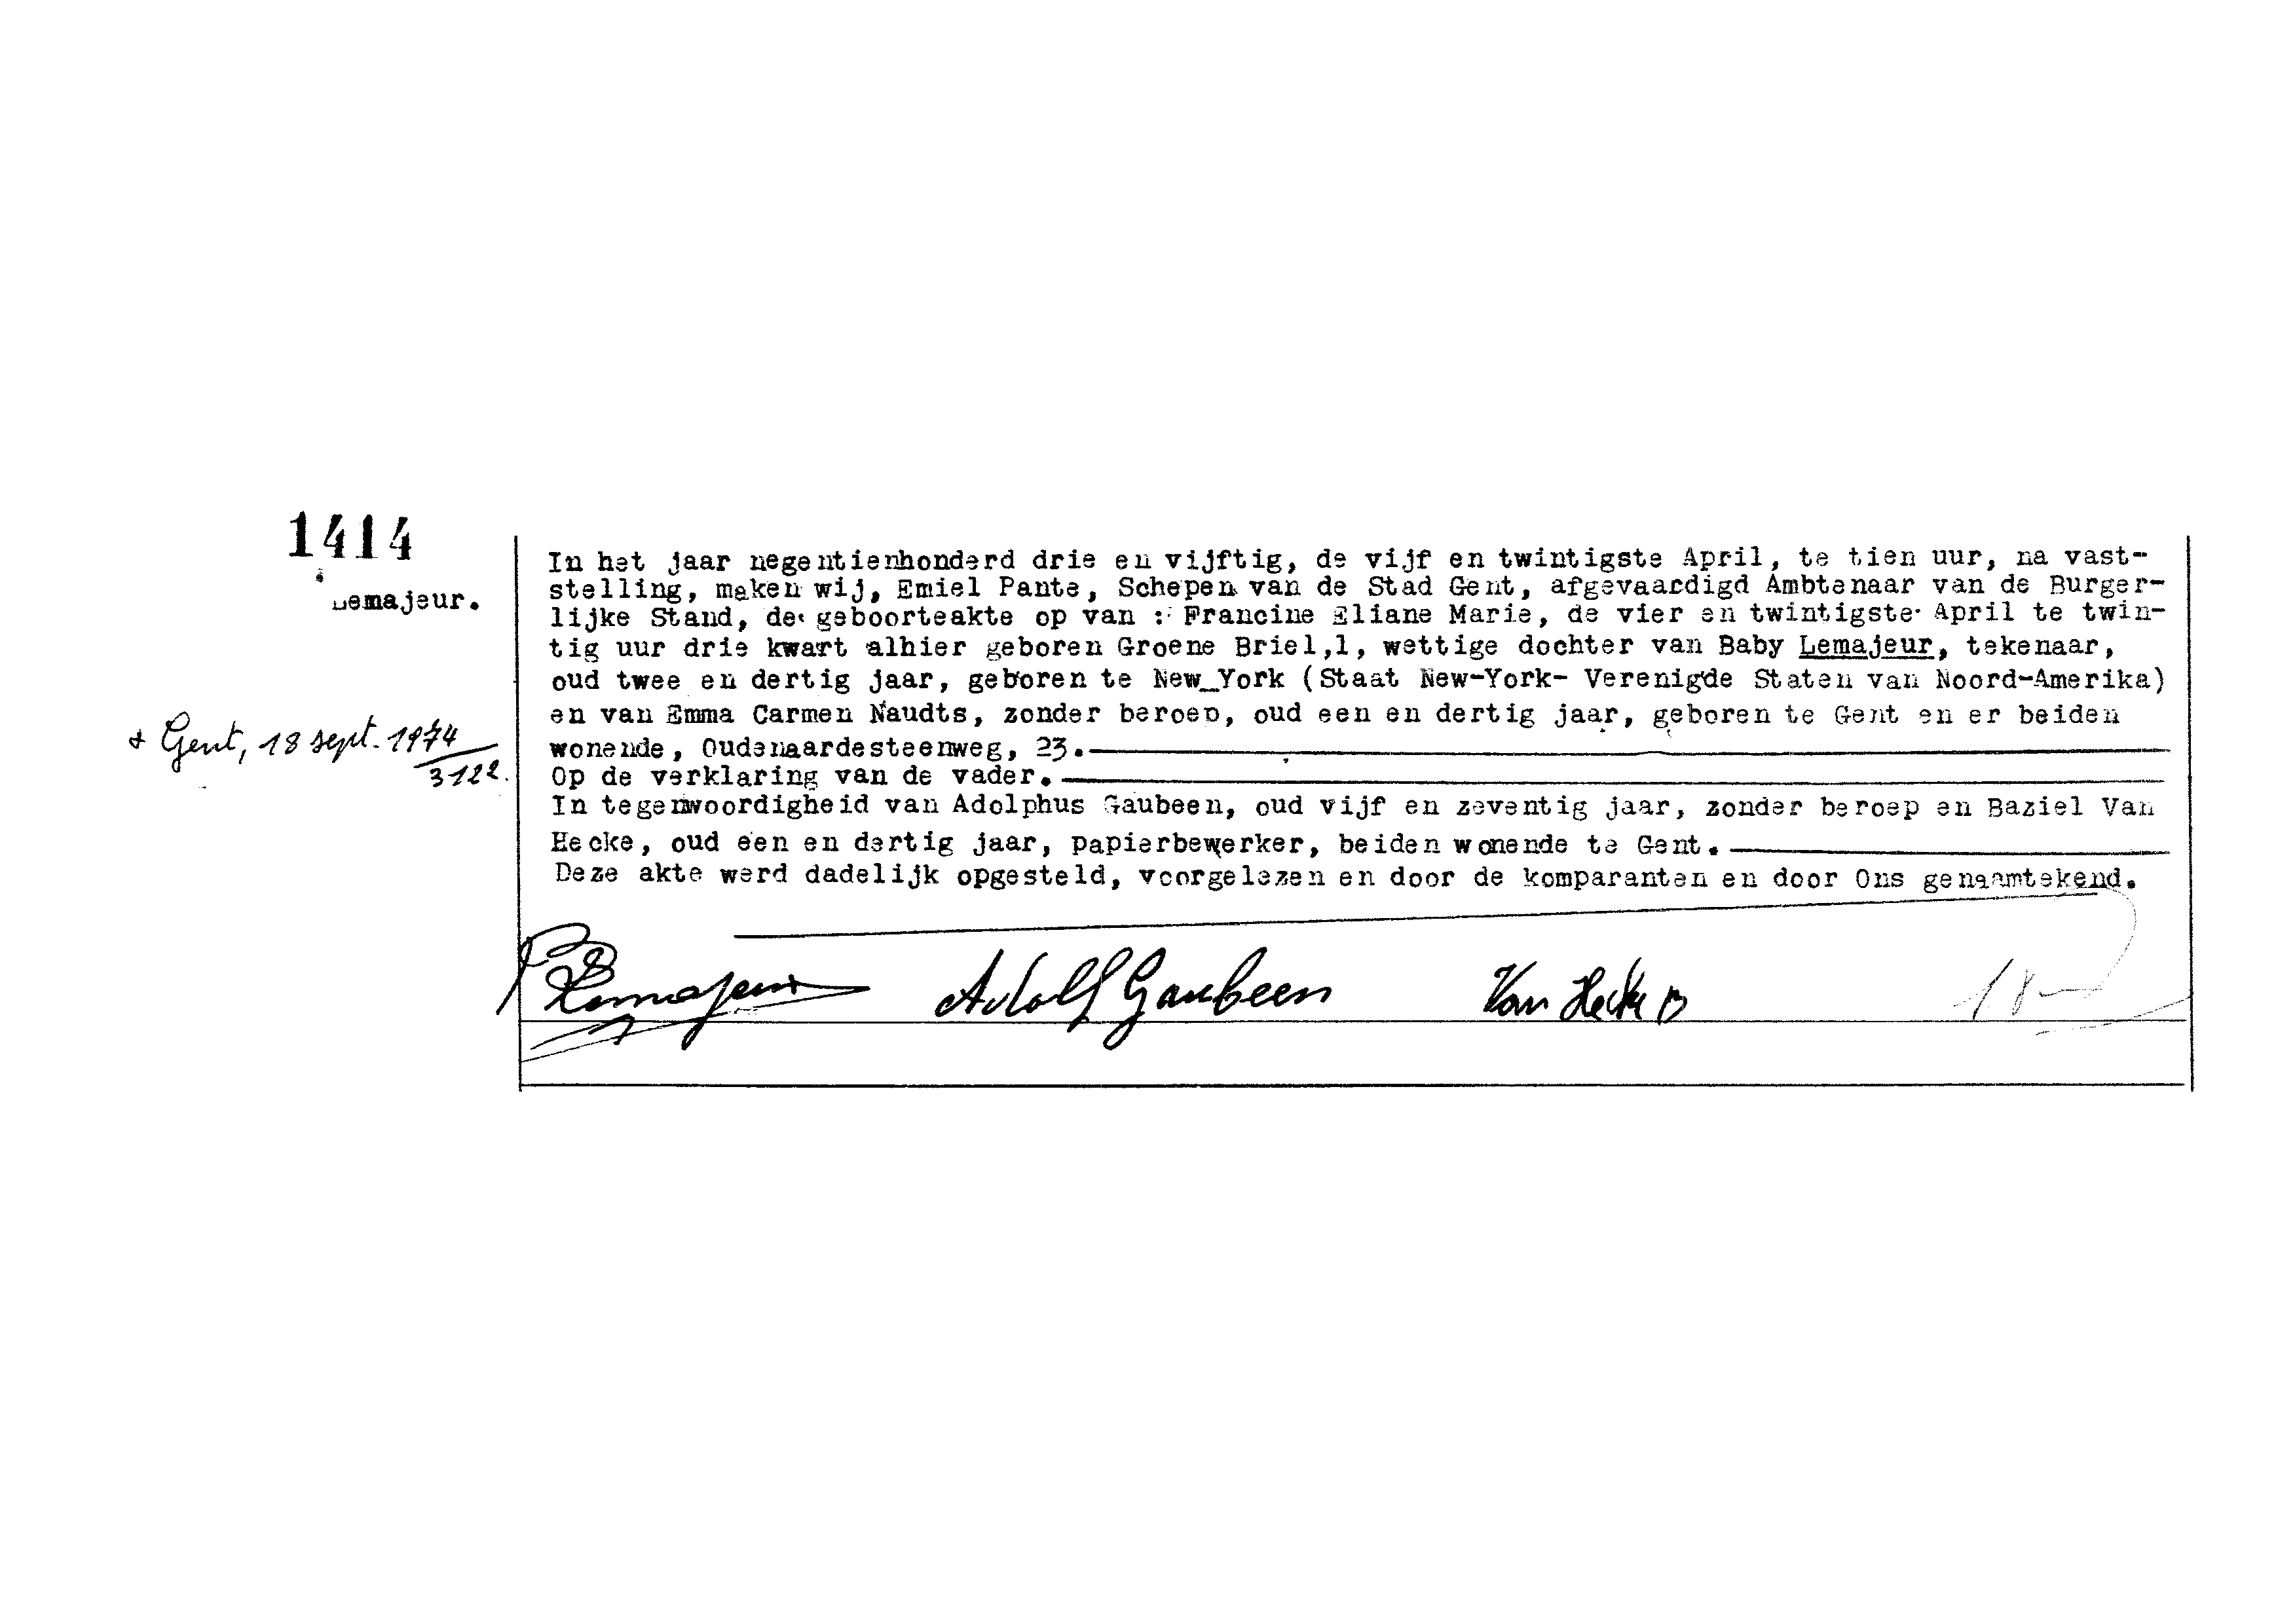 1414
Lemajeur.
+ Gent, 18 sept. 1974
3122.
In het jaar negentienhonderd drie en vijftig, de vijf en twintigste April, te tien uur, na vast-
stelling, maken wij, Emiel Pante, Schepen van de Stad Gent, afgevaardigd Ambtenaar van de Burger-
lijke Stand, de geboorteakte op van : Francine Eliane Marie, de vier en twintigste April te twin-
tig uur drie kwart alhier geboren Groene Briel,1, wettige dochter van Baby Lemajeur, tekenaar,
oud twee en dertig jaar, geboren te New_York (Staat New-York- Verenigde Staten van Noord-Amerika)
en van Emma Carmen Naudts, zonder beroep, oud een en dertig jaar, geboren te Gent en er beiden
wonende, Oudenaardesteenweg, 23.
Op de verklaring van de vader.
In tegenwoordigheid van Adolphus Gaubeen, oud vijf en zeventig jaar, zonder beroep en Baziel Van
Hecke, oud een en dertig jaar, papierbewerker, beiden wonende te Gent.
Deze akte werd dadelijk opgesteld, voorgelezen en door de komparanten en door Ons genaamtekend.
B Lemajeur Adolf Gaubeen Van Hecke B